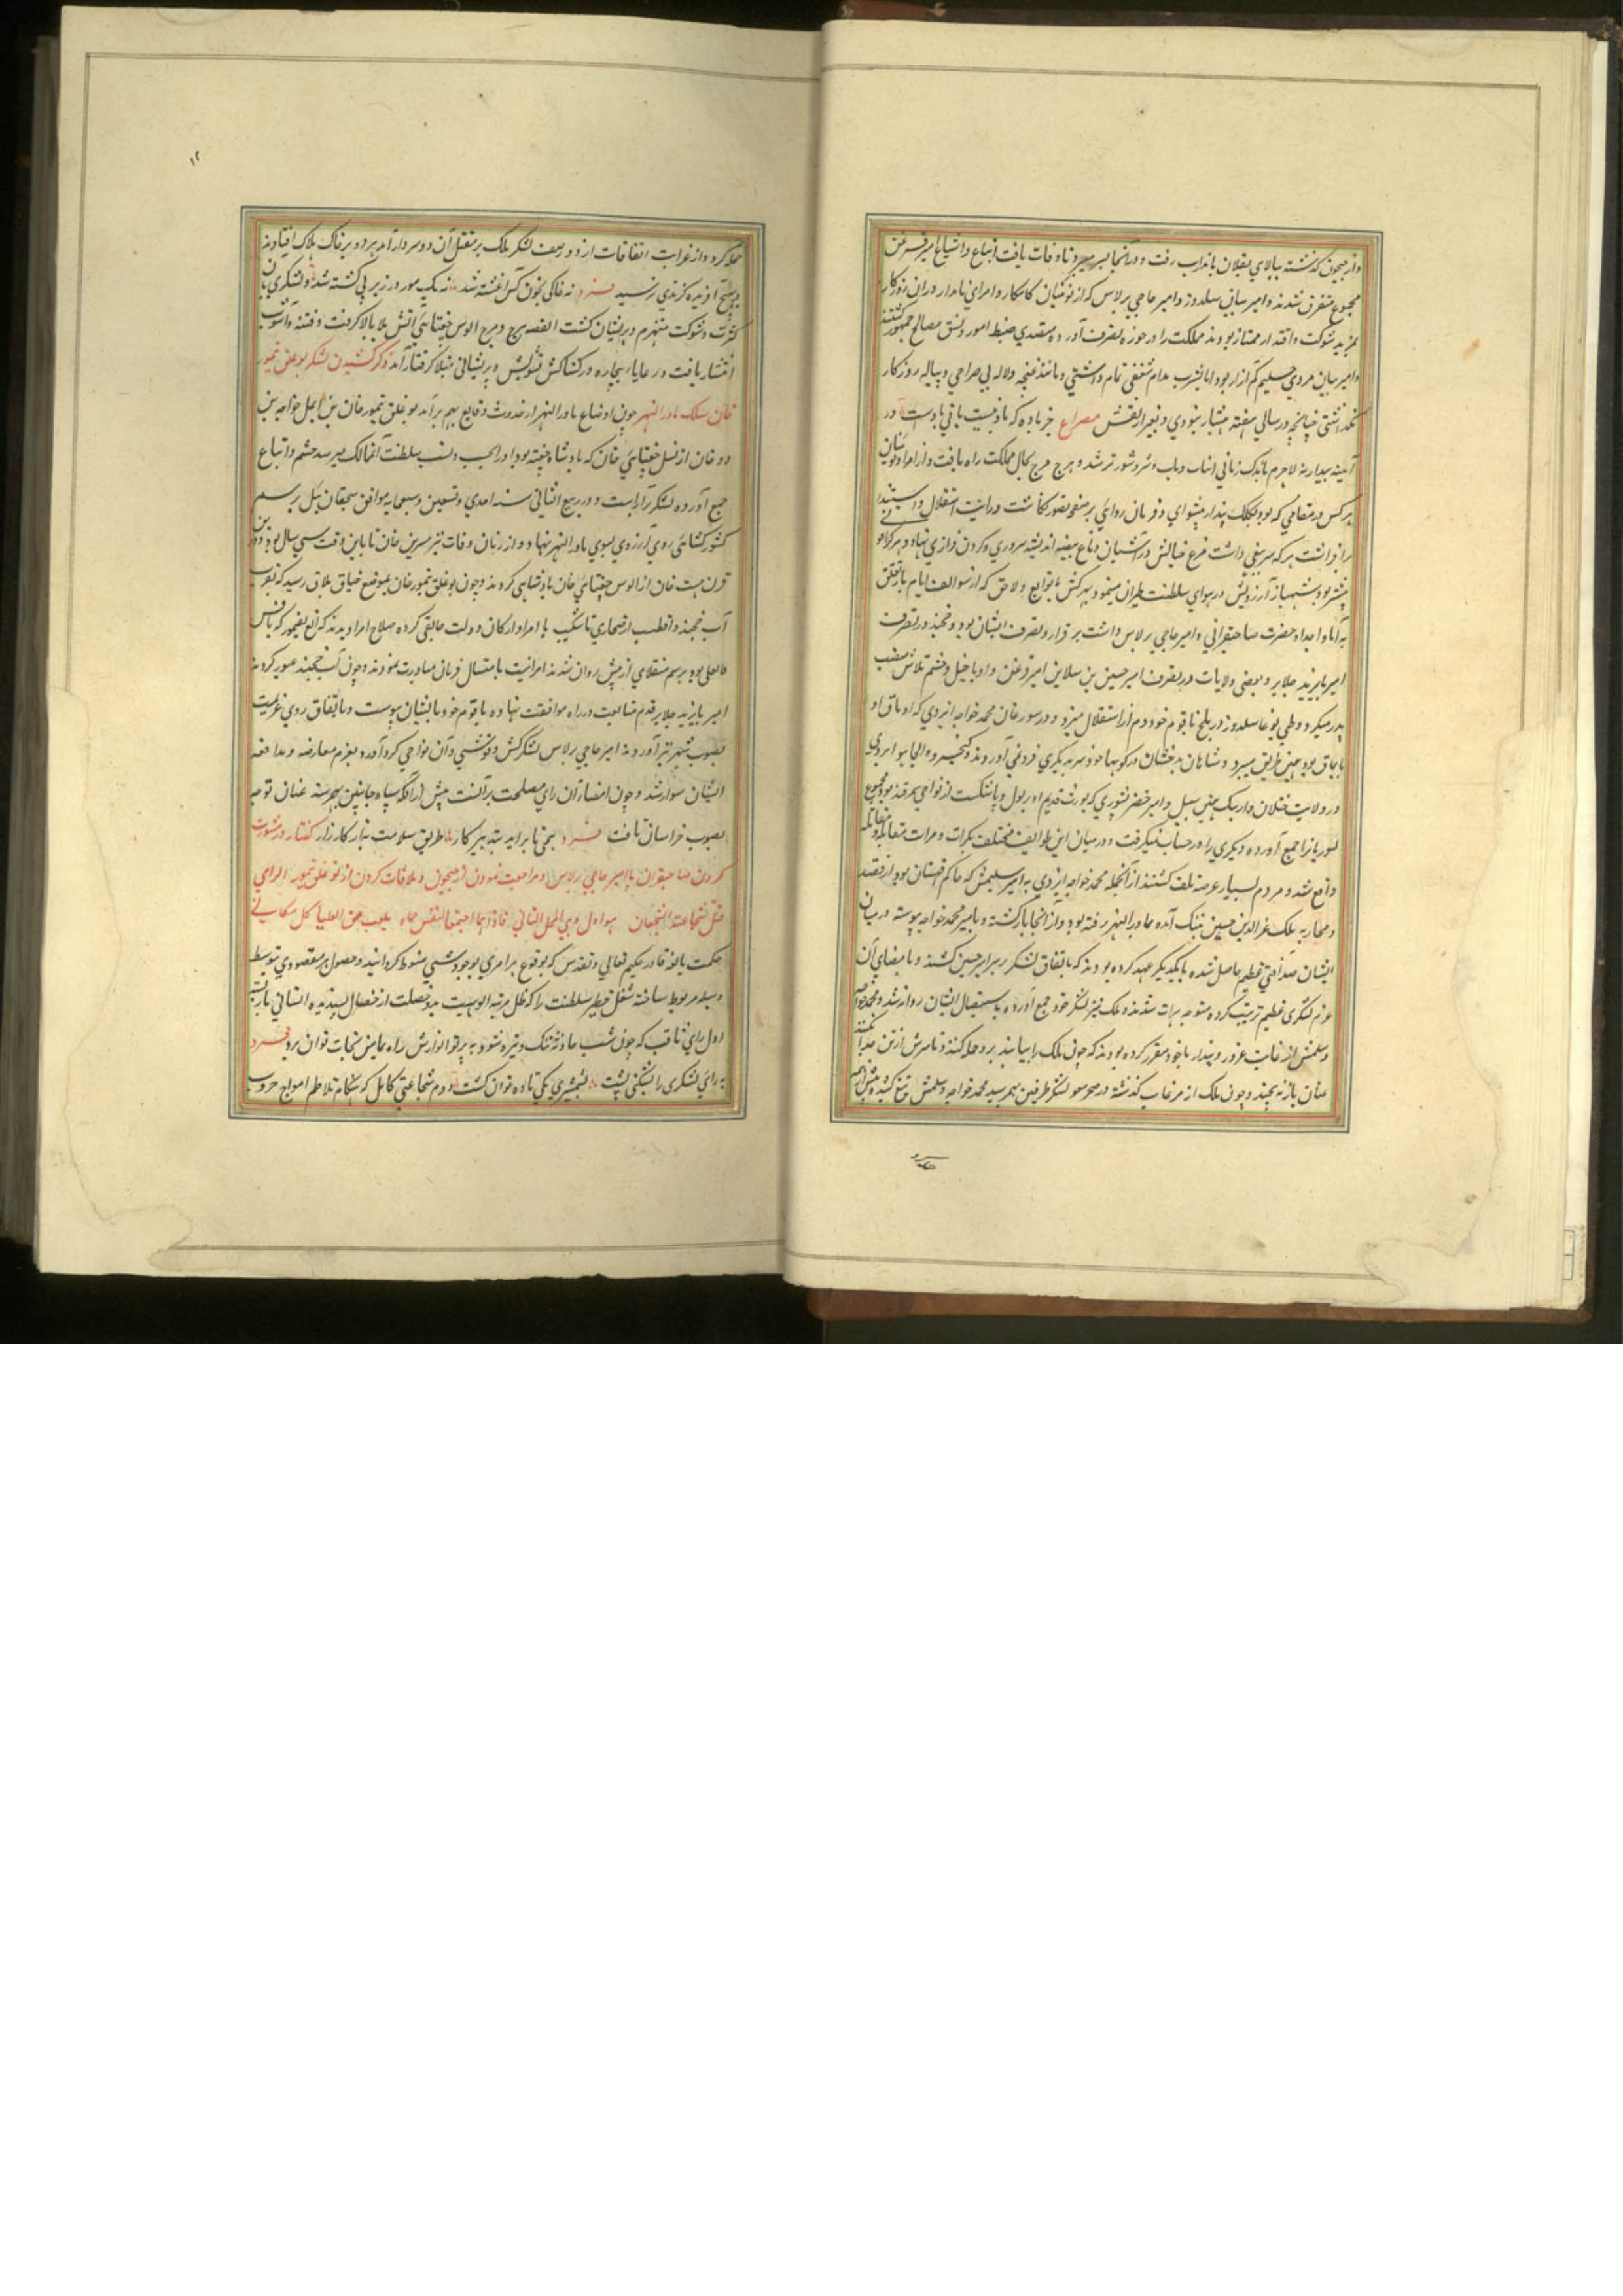 واز جیحون گذشته ببالای بقلان باندراب رفت و در آنجا بسر میبرد تا وفات یافت اتباع واشیاع امیر قزغن
مجموع متفرق شدند و امیر بیان سلدوز و امیر حاجی برلاس که از نوئینان کامکار و امرای نامدار در آن روزگار
بمزید شوکت واقتدار ممتاز بودند مملکت را در حوزه تصرف آورده متصدی ضبط امور و نسق مصالح جمهور گشتند
وامیر بیان مردی سلیم کم آزار بود اما بشرب مدام شعفی تمام داشتی و مانند غنچه ولاله بی صراحی و پیاله روزگار
نگذاشتی چنانچه در سالی هفته هشیار نبودی و نعم القش مصراع جز باده که باد نیست باقی بادست در
آیینه بیدار نه لاجرم باندک زمانی اسباب و شر و شور تر شد و هرج مرج بحال مملکت راه یافت و از امرا و نوئینان
هر کس در مقامی که بود بکلک پندار پیشوای و فرمان روایی بر صفحه تصور نگاشت و رایت استقلال واستبداد
برافراشت هر که سریغی داشت مرغ خیالش در آشیان دماغ بیضه اندیشه سروری و گردن فرازی نهاد و هر کرا
بود شهباز آرزویش در هوای سلطنت طیران مینمود و شهر کش با توابع و لواحق که از سوالف ایام باز تعلق
به آبا و اجداد حضرت صاحبقرانی و امیر حاجی برلاس داشت بر قرار و تصرف ایشان بود و خجند در تصرف
امیر بایزید جلایر و بعضی ولایات در تصرف امیر حسین بن مسلای بن امیر قزغن و او با خیل وحشم تلاش منصب
پدر میکرد و ولجی بوغا سلدوز در بلخ با قوم خود دم از استقلال میزد و در سورغان محمد خواجه اپردی که از
نایمان بود همین طریق میسپرد و شاهان بدخشان در کوهها خود سر بدیگری فرو نمی آوردند و کیخسرو والجایتو اپردی
در ولایت ختلان وارهنگ همین سبیل و امیر خضر یسوری که یورت قدیم او سرپل و تاشکنت از نواحی سمرقند بود مجموع
یسوریانرا جمع آورده دیگری را در حساب نمیگرفت و در میان این طوایف مختلف بکرات ومرات مقابله و مقاتله
واقع شد و مردم بسیار عرضه تلف گشتند از آنجمله محمد خواجه اپردی به امیر ستلمش که حاکم قهستان بود از قصد
ومحاربه ملک عزالدین حسین بتنگ آمده بماوراءالنهر رفته بود و از آنجا بازگشته و با میر محمد خواجه پیوسته در میان
ایشان صداقتی عظیم حاصل شده با یکدیگر عهد کرده بودند که باتفاق لشکر بر سر امیر حسین کشند و بامضای آن
عزم لشکری عظیم ترتیب کرده متوجه هرات شدند و ملک نیز لشکر خود جمع آورده باستقبال ایشان روانه شد و محمد خواجه
و ستلمش از غایت غرور و پندار با خود مقرر کرده بودند که چون ملک را بیابند برو حمله کنند و تا سرش از تن جدا نکنند
عنان باز نپیچند و چون ملک از مرغاب گذشته در صحرا لشکر طرفین بهم رسید محمد خواجه و ستلمش تیغ کشیده پیش از همه
حمله کردند
۱۲
حمله کرد و از غرایب اتفاقات از دو صف لشکر ملک بر مقتل آن دو سردار آمد هر دو بر خاک هلاک افتادند
و بهیچ آفریده گزندی نرسید فرد نه خاکی بخون کس آغشته شد نه یک مور در زیر پی کشته شد و لشکری بآن
کثرت و شوکت منهزم و پریشان گشت القصه هرج و مرج الوس جغتایی آتش بلا بالا گرفت و فتنه و آشوب
انتشار یافت و رعایا بیچاره در کشاکش تشویش و پریشانی مبتلا و گرفتار آمد ذکر لشکر کشیدن توغلق تیمور
خان بملک ماوراءالنهر چون اوضاع ماوراءالنهر از حدوث وقایع بهم برآمد توغلق تیمور خان بن ایمل خواجه بن
دوا خان از نسل جغتای خان که پادشاه جته بود و او را بحسب و نسب سلطنت آن ممالک میرسد حشم واتباع
جمع آورده لشکر آراست و در ربیع الثانی سنه احدی وستین وسبعمایه موافق سیچقان ئیل بر سم
کشور کشایی روی آرزوی بسوی ماوراءالنهر نهاد و از زمان وفات ترمشیرین خان تا باین وقت سی سال بود و درین
قرن هشت خان از الوس جغتای خان پادشاهی کردند و چون توغلق تیمور خان بموضع خیاق بلاق رسید که بقرب
آب خجند واقعست از صحاری تاشکنت با امرا وارکان دولت جانقی کرده صلاح امرا دیدند که الغ تقتمور که بانس
و اتعلی بود برسم منقلای از پیش روان شدند امرا نیت بامتثال فرمان مبادرت نمودند و چون آب خجند عبور کردند
امیر بایزید جلایر قدم متابعت در راه موافقت نهاده با قوم خود بایشان پیوست و باتفاق روی عزیمت
بصوب شهر سبز آوردند امیر حاجی برلاس لشکر کش و قرشی و آن نواحی گرد آورد و بعزم معارضه و مدافعه
ایشان سوار شد و چون امضاء آن رای مصلحت برآنست پیش از آنکه سپاه جانبین بهم رسند عنان توجه
بصوب خراسان تافت فرد بجی تا برآید بتدبیر کار طریق سلامت به از کارزار گفتار در مشورت
کردن صاحبقران با امیر حاجی برلاس و مراجعت نمودن از جیحون و ملاقات کردن از توغلق تیمور الرای
قبل شجاعة الشجعان هو اول وهی المحل الثانی فاذا هما اجتمعا لنفس بلغت من العلیا کل مکان
حکمت بالغه قادر حکیم تعالی و تقدس که وقوع هر امری بوجود سببی منوط گردانید و حصول هر مقصودی بتوسط
وسیله مربوط ساخته شغل خطیر سلطنت را که ظل مرتبه الوهیت بدو خصلت از خصال پسندیده انسانی باز بسته
اول رای ثاقب که چون شب حادثه تنگ و تیره شود به پرتو انوارش راه بمأمن نجات توان برد فرد
به رای لشکری را بشکنی پشت بشمشیری یکی تا ده توان کشت دوم شجاعتی کامل که هنگام تلاطم امواج حروب